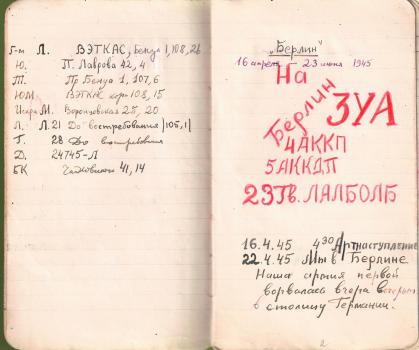 Б-м Л. ВЭТКАС, Бенуа 1,108,26
Ю. П. Лаврова 42, 4
Т. Пр Бенуа 1, 107, 6
ЮМ ВЭТКАС корп 108, 15
М. Воронцовская 25, 20
Л. Л 21 До востребования /105,1/
Т. 28 До востребования
Д. 24745-Л
БК Чайковского 41, 14
„Берлин"
16 апрель – 23 июня 1945
На
Берлин
ЗУА
4АККП
5АККДП
23Гв. ЛАЛБОЛБ
16.4.45 4³⁰ Артнаступление
22.4.45 Мы в Берлине.
Наша армия первой
ворвалась вчера вечером
в столицу Германии.
2